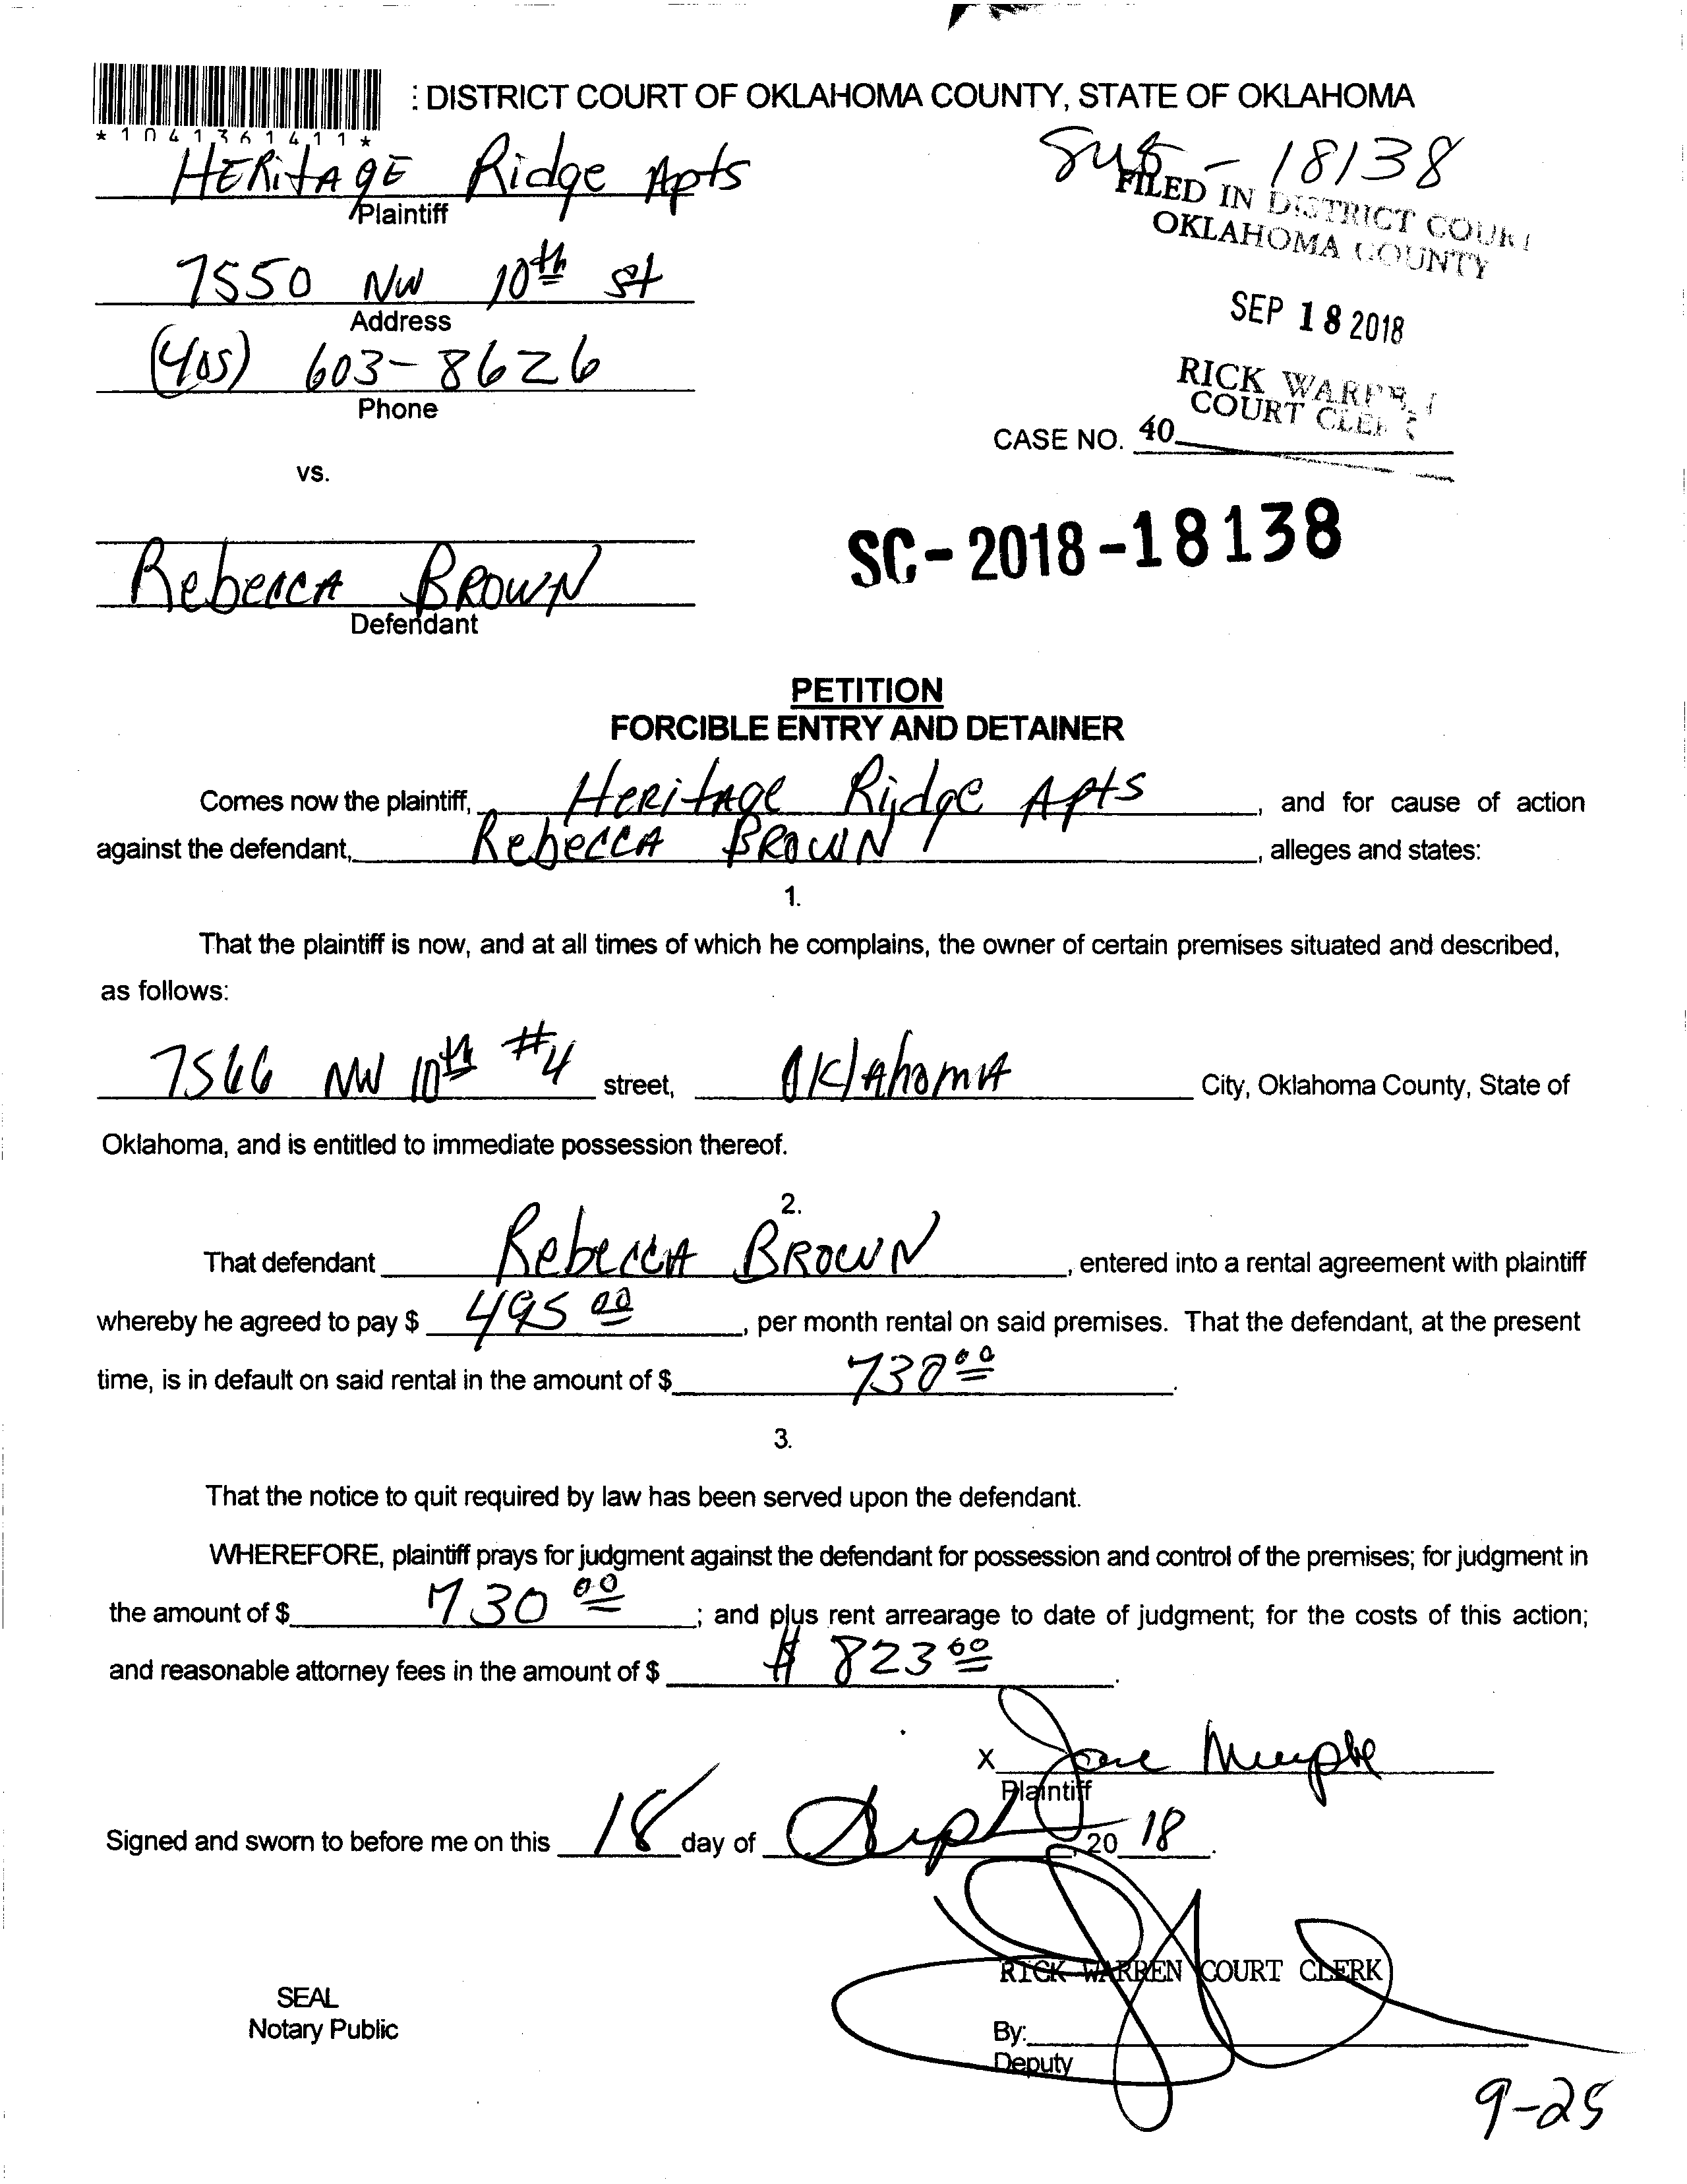 : DISTRICT COURT OF OKLAHOMA COUNTY, STATE OF OKLAHOMA
*1041361411*
HERitAGE Ridge Apts
Plaintiff
- 18138
FILED IN DISTRICT COURT
OKLAHOMA COUNTY
7550 NW 10th St
Address
SEP 18 2018
(405) 603-8626
Phone
RICK WARREN
COURT CLERK
CASE NO. 40
vs.
SC-2018-18138
Rebecca BROWN
Defendant
PETITION
FORCIBLE ENTRY AND DETAINER
Comes now the plaintiff, Heritage Ridge Apts, and for cause of action
against the defendant, Rebecca BROWN, alleges and states:
1.
That the plaintiff is now, and at all times of which he complains, the owner of certain premises situated and described,
as follows:
7566 NW 10th #4 street, Oklahoma City, Oklahoma County, State of
Oklahoma, and is entitled to immediate possession thereof.
2.
That defendant Rebecca BROWN, entered into a rental agreement with plaintiff
whereby he agreed to pay $ 495 00, per month rental on said premises. That the defendant, at the present
time, is in default on said rental in the amount of $ 730 00.
3.
That the notice to quit required by law has been served upon the defendant.
WHEREFORE, plaintiff prays for judgment against the defendant for possession and control of the premises; for judgment in
the amount of $ 730 00; and plus rent arrearage to date of judgment; for the costs of this action;
and reasonable attorney fees in the amount of $ $ 823 00.
X
Plaintiff
Signed and sworn to before me on this 18 day of Sept, 20 18.
RICK WARREN COURT CLERK
SEAL
Notary Public
By:
Deputy
9-25